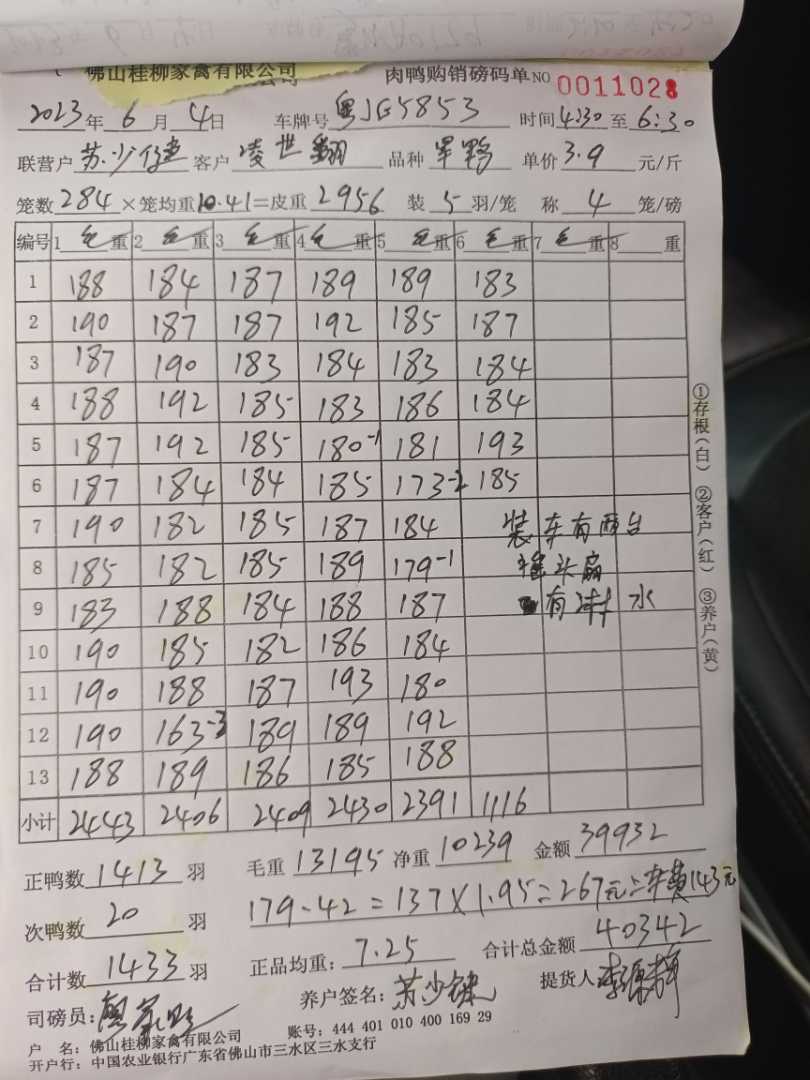 佛山桂柳家禽有限公司 肉鸭购销磅码单 NO 0011028
2023年 6 月 4日 车牌号 粤JG5853 时间 4:30 至 6:30
联营户 苏少健 客户 凌世翻 品种 单价 3.9 元/斤
笼数 284 ×笼均重 10.41 =皮重 2956 装 5 羽/笼 称 4 笼/磅
编号 1 毛重 2 毛重 3 毛重 4 毛重 5 毛重 6 毛重 7 毛重 8 重
1 188 184 187 189 189 183
2 190 187 187 192 185 187
3 187 190 183 184 183 184
4 188 192 185 183 186 184
5 187 192 185 180-1 181 193
6 187 184 184 185 173-2 185
7 190 182 185 187 184 装车有两台
8 185 182 185 189 179-1 摇头扇
9 183 188 184 188 187 有冲水
10 190 185 182 186 184
11 190 188 187 193 180
12 190 163-3 189 189 192
13 188 189 186 185 188
小计 2443 2406 2409 2430 2391 1116
正鸭数 1413 羽 毛重 13195 净重 10239 金额 39932
次鸭数 20 羽 179-42=137×1.95=267元 车费143元
合计数 1433 羽 正品均重: 7.25 合计总金额 40342
司磅员: 养户签名: 苏少健 提货人
户 名: 佛山桂柳家禽有限公司 账号: 444 401 010 400 169 29
开户行: 中国农业银行广东省佛山市三水区三水支行
①存根(白) ②客户(红) ③养户(黄)